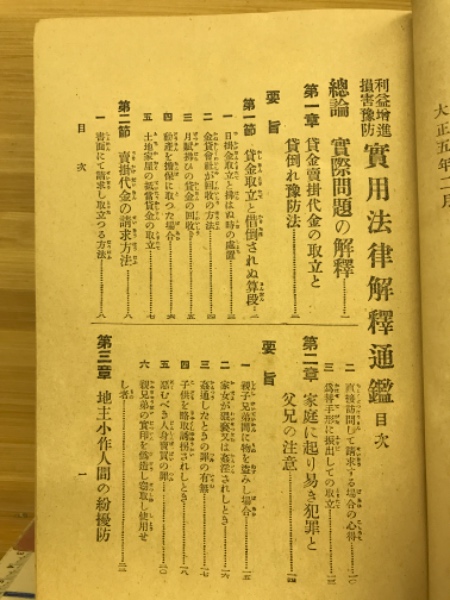 大正五年二月
利益增進
損害豫防
實用法律解釋通鑑 目次
總論 實際問題の解釋…一
第一章 貸金賣掛代金の取立と
貸倒れ豫防法…二
要旨
第一節 貸金取立と借倒されぬ算段…二
一 日掛金取立と掛はぬ時の處置…
二 金貸會社が回收の方法…
三 月賦拂ひの貸金の回收…
四 動產を擔保に取つた場合…六
五 土地家屋の抵當貸金の取立…七
第二節 賣掛代金の請求方法…八
一 書面にて請求し取立つる方法…八
目次
二 直接訪問して請求する場合の心得…一〇
三 爲替手形に振出しての取立…一三
第二章 家庭に起り易き犯罪と
父兄の注意…一四
要旨
一 親子兄弟間に物を盜みし場合…一五
二 家女が猥褻又は姦淫されしとき…一六
三 姦通しなたときの罪の有無…一七
四 子供を略取誘拐されしとき…一八
五 惡むべき人身賣買の罪…二〇
六 親兄弟の實印を僞造し竊取し使用せ
し者…二一
第三章 地主小作人間の紛擾防
一